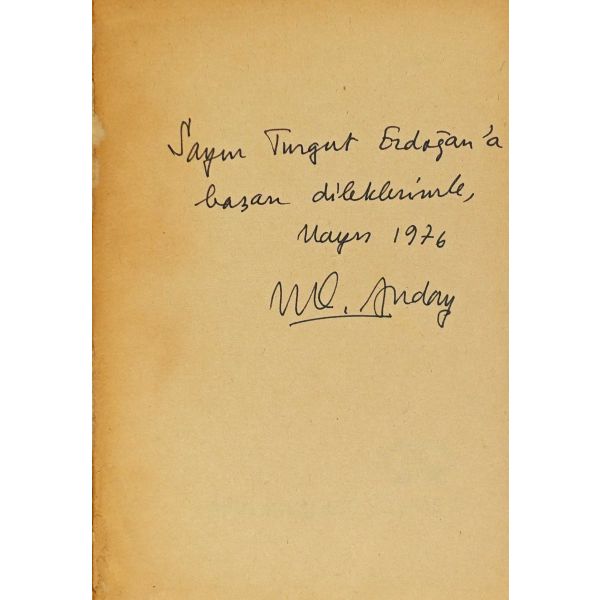 Sayın Turgut Erdoğan'a
başarı dileklerimle,
Mayıs 1976
MC. Anday